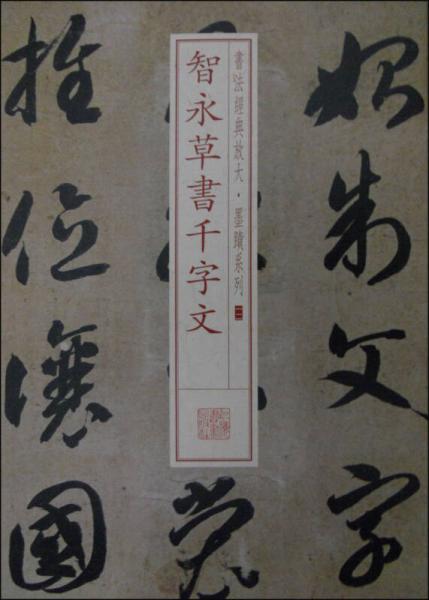 始制文字
書法經典放大・墨蹟系列
智永草書千字文
裳
推位讓國